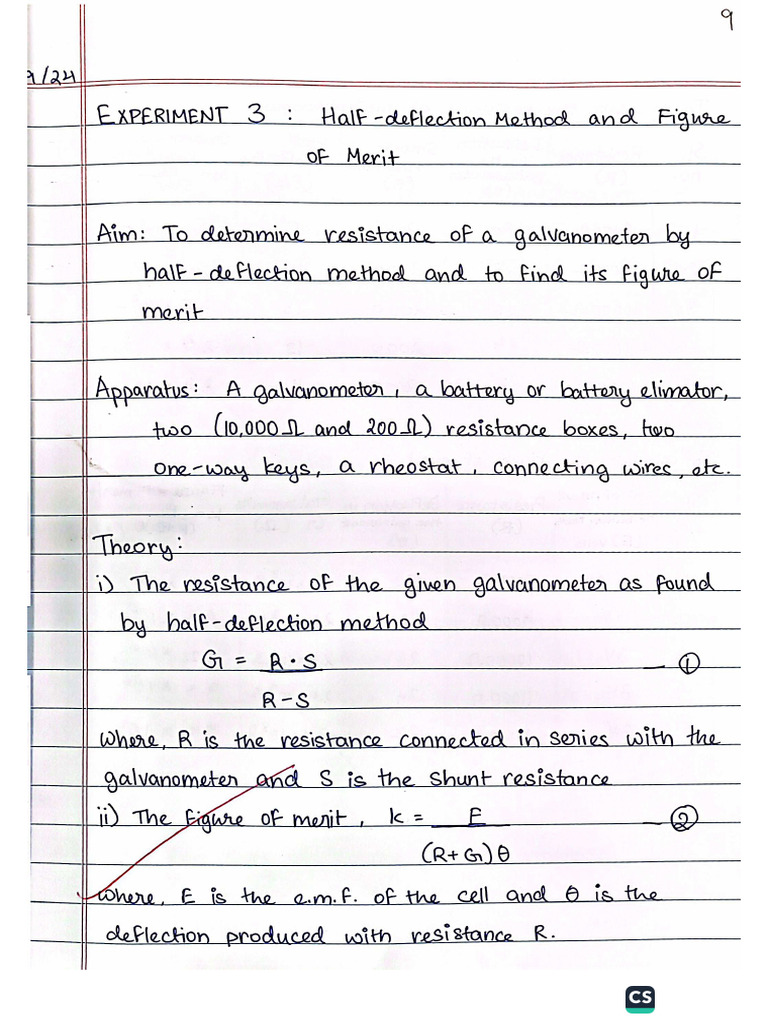 9
9/24
EXPERIMENT 3 : Half-deflection Method and Figure
of Merit
Aim: To determine resistance of a galvanometer by
half-deflection method and to find its figure of
merit
Apparatus: A galvanometer, a battery or battery elimator,
two (10,000 Ω and 200 Ω) resistance boxes, two
one-way keys, a rheostat, connecting wires, etc.
Theory:
i) The resistance of the given galvanometer as found
by half-deflection method
G = R·S — ①
R-S
where, R is the resistance connected in series with the
galvanometer and S is the shunt resistance
ii) The figure of merit, k = E — ②
(R+G)θ
where, E is the e.m.f. of the cell and θ is the
deflection produced with resistance R.
CS